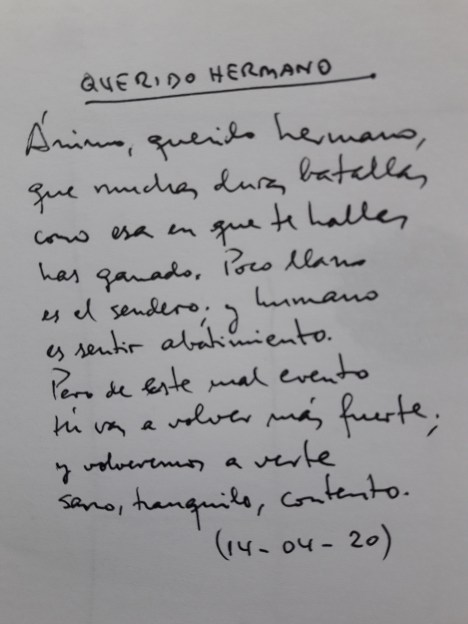 QUERIDO HERMANO
Ánimo, querido hermano,
que muchas duras batallas
como esa en que te hallas
has ganado. Poco llano
es el sendero; y humano
es sentir abatimiento.
Pero de este mal evento
tú vas a volver más fuerte;
y volveremos a verte
sano, tranquilo, contento.
(14-04-20)